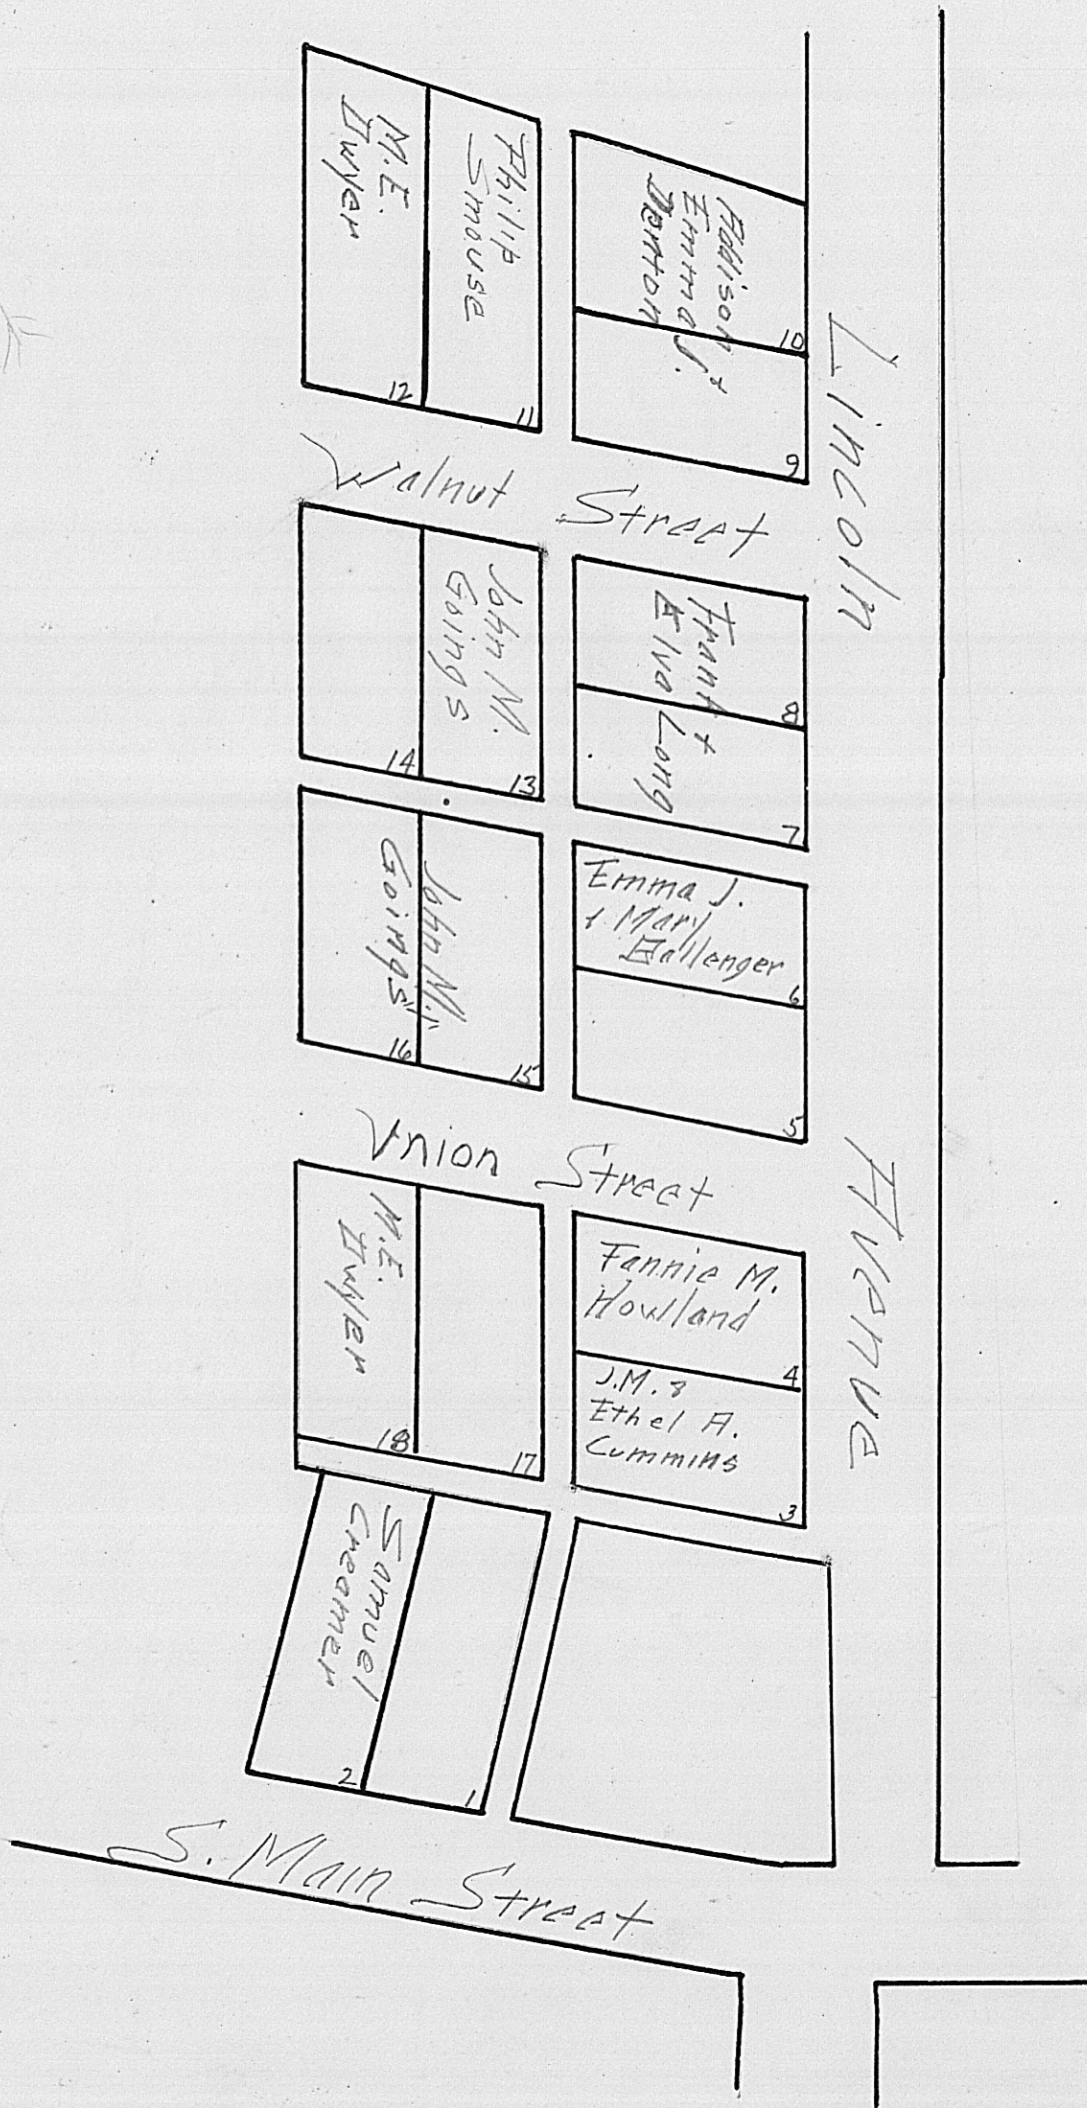 M.E.
Dwyer
12
Philip
Smouse
11
Addison +
Emma J.
Denton
10
9
Lincoln
Walnut Street
14
John N.
Goings
13
Frank +
Elva Long
8
7
John N.
Goings
16
15
Emma J.
& Mary
Ballenger
6
5
Avenue
Union Street
M.E.
Dwyer
18
17
Fannie M.
Howland
4
J.M. &
Ethel A.
Cummins
3
Samuel
Creamer
2
1
S. Main Street